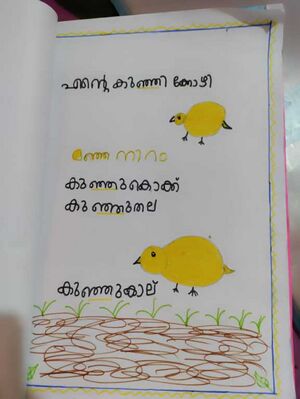 എന്റെ കുഞ്ഞി കോഴി
മഞ്ഞ നിറം
കുഞ്ഞുകൊക്ക്
കുഞ്ഞുതല
കുഞ്ഞുകാല്